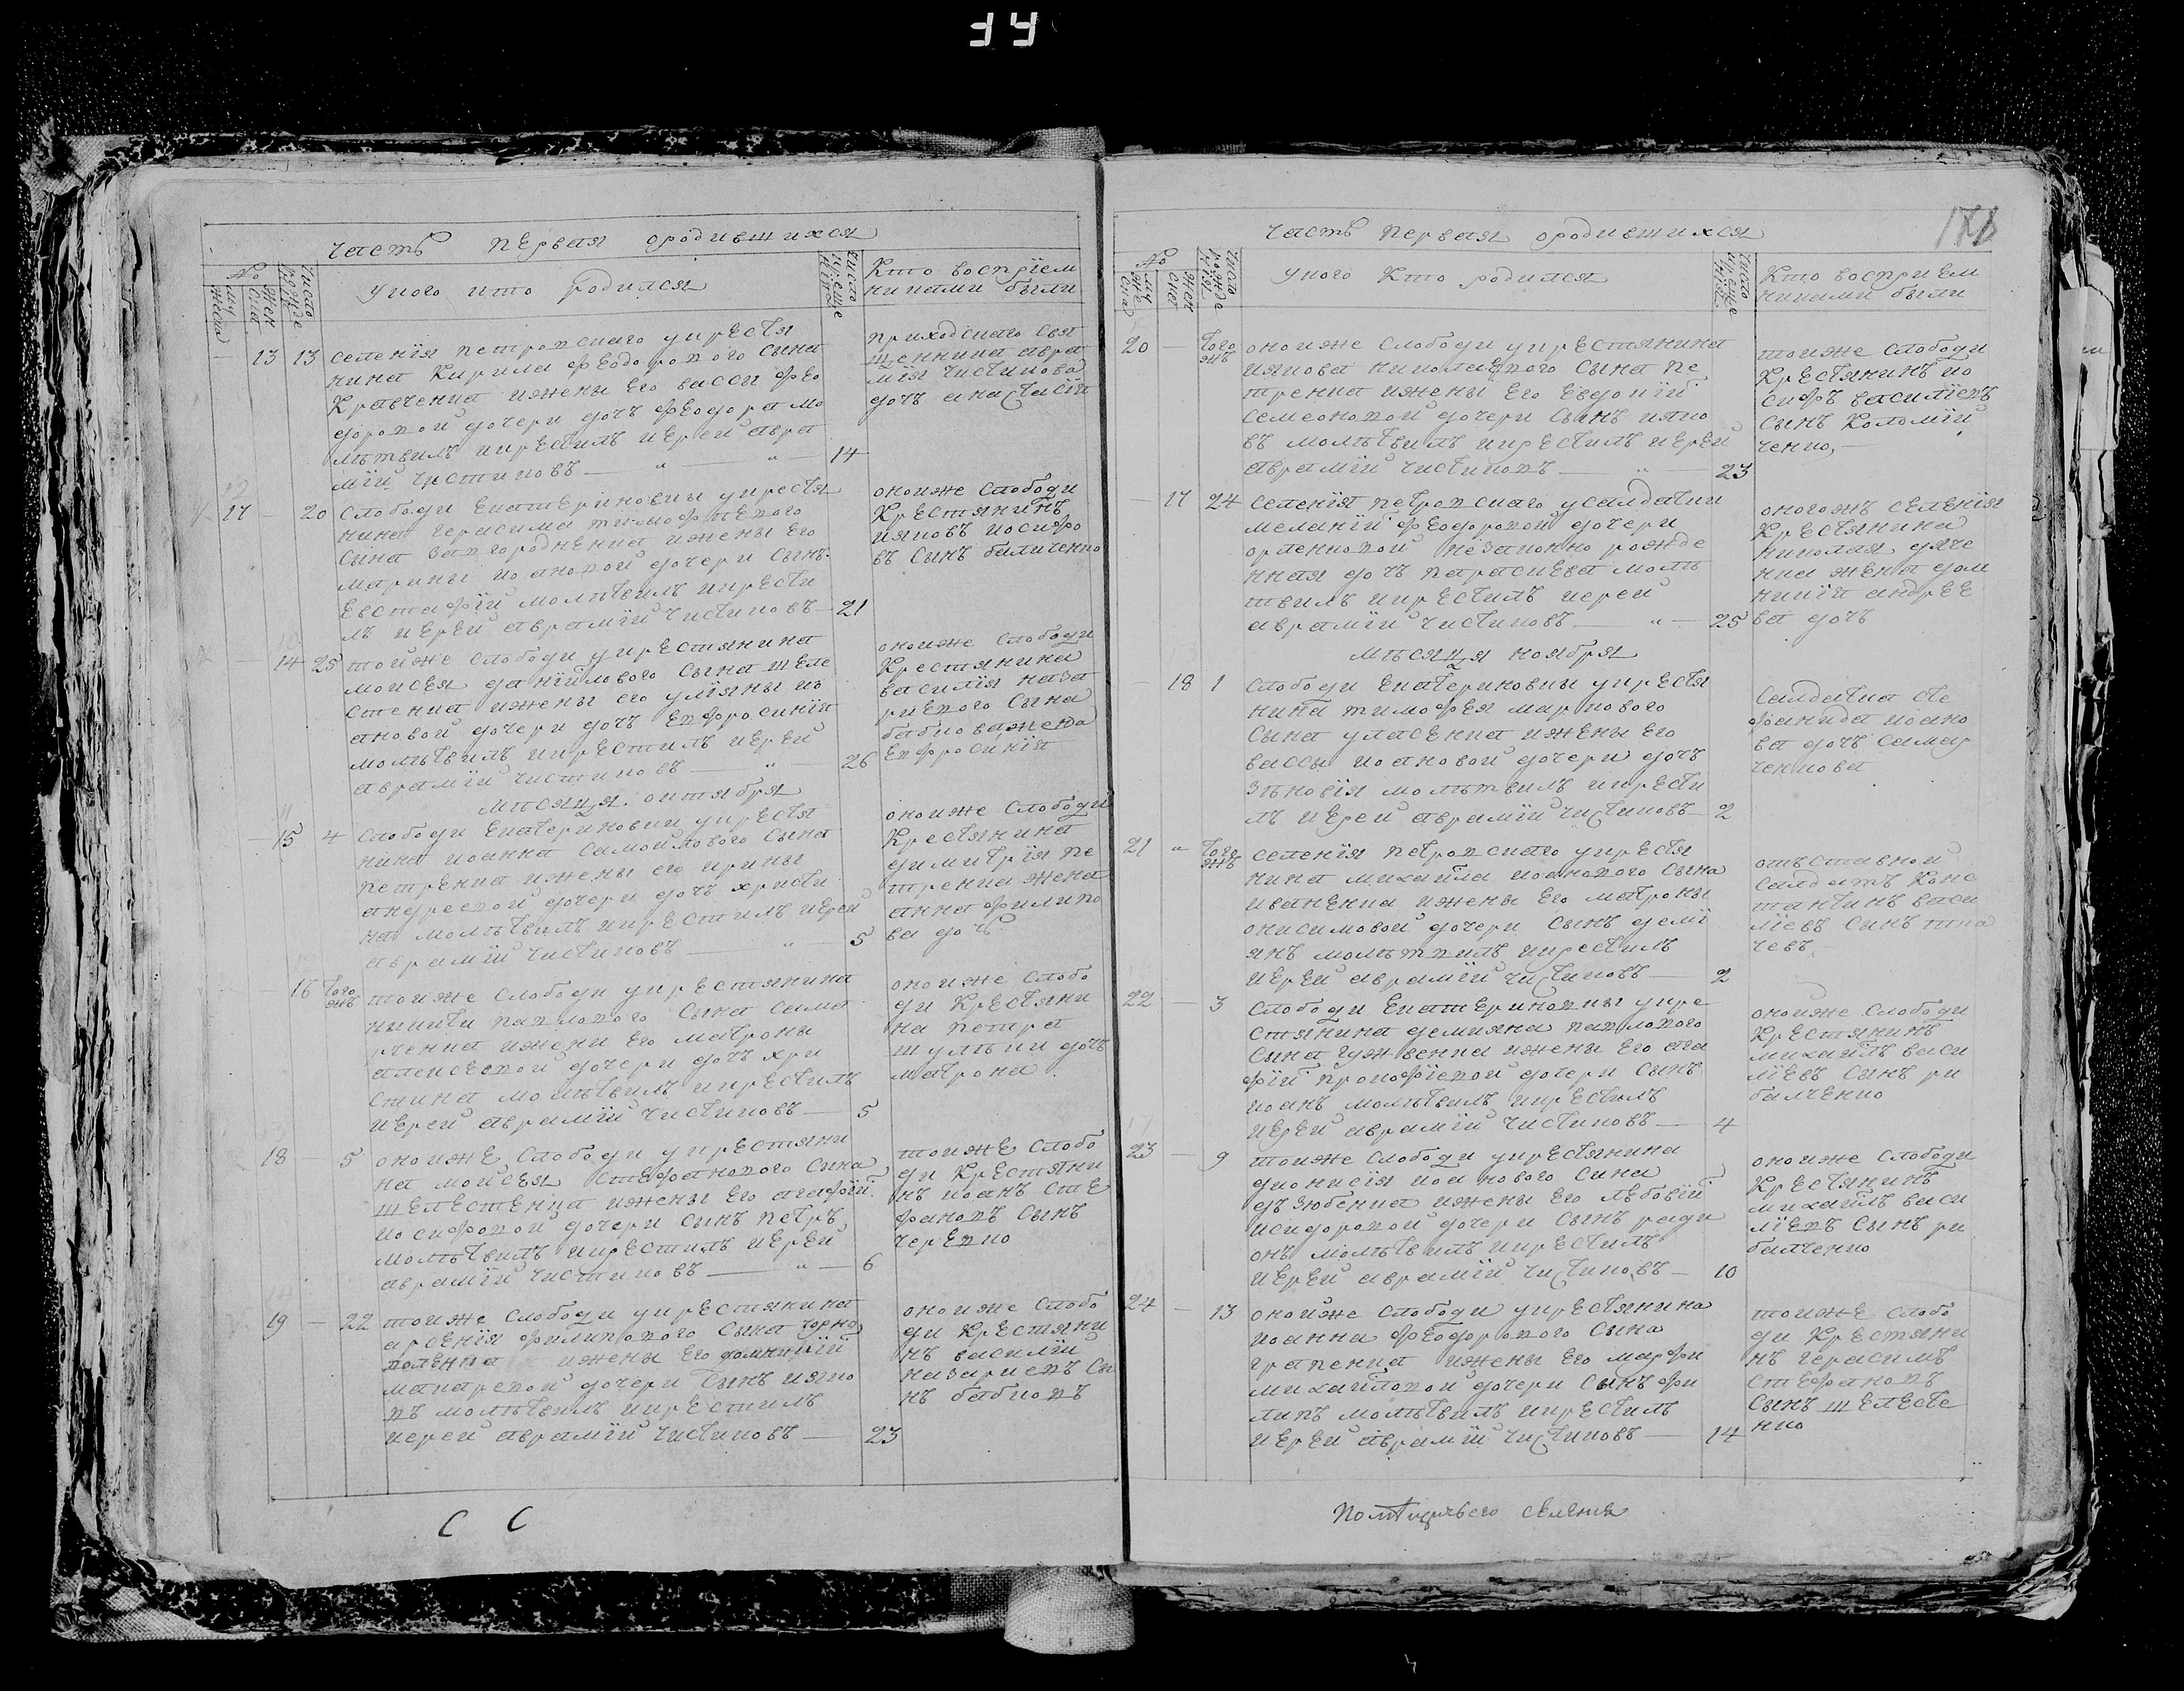 часть первая ородившихся
№
мужеска
женска
число рождения
уного кто родился
число крещения
Кто восприем
никами были
13 13 селенія петровскаго укрестя
нина Кирила феодорового сына
Кравченка ижены его васси фео
доровой дочери дочь феодора мо
литвилъ икрестилъ иерей авра
мій чистиковъ — " — " — 14
приходскаго свя
щенника авра
мія чистикова
дочъ анастасія
17 — 20 слободи Екатериновки укрестя
нина герасима тимофеевого
сина загородненка ижены его
марины иоановой дочери сынъ
Евстафій молитвилъ икрести
лъ иерей аврамій чистиковъ — 21
оноиже слободи
Крестянинъ
ияковъ иосифо
въ синъ баличенко
14 25 тоиже слободи укрестянина
моисея даніилового сына шеле
стенка ижены его уліяны ив
ановой дочери дочъ Евфросинія
молитвилъ икрестилъ иерей
аврамій чистиковъ — " — 26
оноиже слободи
Крестянина
василія наза
риевого сына
бабкова жена
Евфросинія
мѣсяца октября
15 4 слободи Екатериновки укрестя
нина иоанна самоилового сына
петренка ижены его ирины
андреевой дочери дочъ христи
на молитвилъ икрестилъ иерей
аврамій чистиковъ — " — 5
оноиже слободи
Крестянина
димитрія пе
тренка жена
анна филипо
ва дочъ
16 того жъ тоиже слободи укрестянина
никити павлового сына сама
рченка ижени его матроны
алексеевой дочери дочъ хри
стина молитвилъ икрестилъ
иерей аврамій чистиковъ — 5
оноиже слобо
ди Крестяни
на петра
шулѣки дочъ
матрона
18 — 5 оноиже слободи укрестяни
на моисея стефановаго сина
шелестенка ижены его агафій
иосифовой дочери синъ петръ
молитвилъ икрестилъ иерей
аврамій чистиковъ — " — 6
тоиже слобо
ди Крестяни
нъ иоанъ сте
фановъ сынъ
черевко
19 — 22 тоиже слободи укрестянина
арсенія филипового сына чорно
ижены его
макаревой дочери сынъ ияко
въ молитвилъ икрестилъ
иерей аврамій чистиковъ — 23
оноиже слобо
ди Крестяни
нъ василій
назариевъ си
нъ бабковъ
С С
часть первая ородившихся
№
муже ска
жен ска
число рожде нія
уного Кто родился
число креще нія
Кто восприем
никами были
20 — того жъ оноиже слободи укрестянина
иякова николаевого сына пе
тренка ижены его Евдокій
семеоновой дочери сынъ ияко
въ молитвилъ икрестилъ иерей
аврамій чистиковъ — " — 23
тоиже слободи
Крестянинъ ио
сифъ василіевъ
сынъ Коломій
ченко, —
— 17 24 селенія петровскаго усалдатки
меланій феодоровой дочери
орленковой незаконно рожде
нная дочъ параскева моли
твилъ икрестилъ иерей
аврамій чистиковъ — " — 25
оногожъ селенія
Крестянина
николая дяче
нка жена дом
никія андрее
ва дочъ
мѣсяца ноября
— 18 1 слободи Екатериновки укрестя
нина тимофея маркового
сына уласенка ижены его
вассы иоановой дочери дочъ
зѣновія молитвилъ икрести
лъ иерей аврамій чистиковъ — 2
салдатка сте
фанида иоано
ва дочъ самар
ченкова
21 " того жъ селенія петровскаго укрестя
нина михаила иоанового сына
иваненка ижены его матроны
онисимовой дочери сынъ демі
янъ молитвилъ икрестилъ
иерей аврамій чистиковъ — 2
отъставной
салдатъ Конс
тантинъ васи
ліевъ синъ тка
чевъ
22 — 3 слободи Екатериновки укре
стянина демияна павлового
сына гужвенка ижены его ага
фій прокофіевой дочери синъ
иоанъ молитвилъ икрестилъ
иерей аврамій чистиковъ — 4
оноиже слободи
Крестянинъ
михаилъ васи
ліевъ синъ ри
балченко
23 — 9 тоиже слободи укрестянина
дионисія иоанового сина
дзюбенка ижены его любовій
исидоровой дочери сынъ роди
онъ молитвилъ икрестилъ
иерей аврамій чистиковъ — 10
оноиже слободи
Крестянинъ
михаилъ васи
ліевъ сынъ ри
балченко
24 — 13 оноиже слободи укрестянина
иоанна феодорового сына
ижены его марфи
михаиловой дочери сынъ фи
липъ молитвилъ икрестилъ
иерей аврамій чистиковъ — 14
тоиже слобо
ди Крестяни
нъ герасимъ
стефановъ
сынъ шелесте
нко